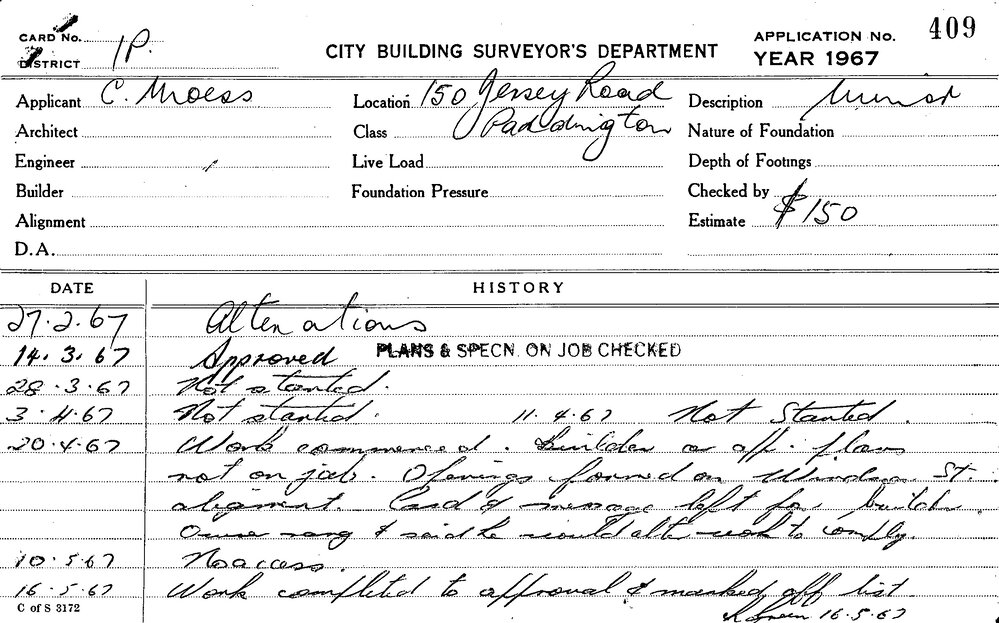 CARD No.
DISTRICT 1P.
CITY BUILDING SURVEYOR'S DEPARTMENT
APPLICATION No. 409
YEAR 1967
Applicant C. Moess
Location 150 Jersey Road
Paddington
Description Minor
Architect
Class
Nature of Foundation
Engineer
Live Load
Depth of Footings
Builder
Foundation Pressure
Checked by
Alignment
Estimate $150
D.A.
DATE HISTORY
27.2.67 Alterations
14.3.67 Approved PLANS & SPECN. ON JOB CHECKED
28.3.67 Not started.
3.4.67 Not started. 11.4.67 Not Started.
20.4.67 Work commenced. Builder or app. plans
not on job. Openings formed on Windsor St.
alignment. Card & message left for builder.
Owner rang & said he would alter work to comply.
10.5.67 No access.
16.5.67 Work completed to approval & marked off list.
16.5.67
C of S 3172